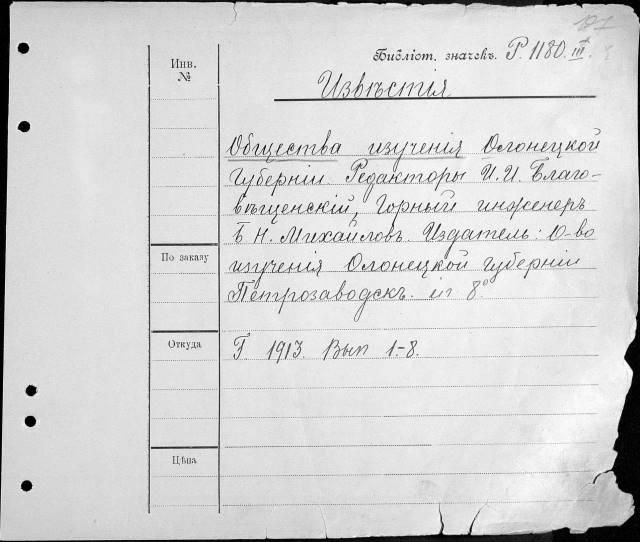 Инв.
№
Библіот. значекъ. Р. 1180. III
Извѣстія
Общества изученія Олонецкой
Губерніи. Редакторы И. И. Благо-
вѣщенскій, Горный инженеръ
Б Н. Михайловъ. Издатель: О-во
изученія Олонецкой губерніи
Петрозаводскъ. 8°
По заказу
Откуда
Г 1913. Вып 1-8.
Цѣна